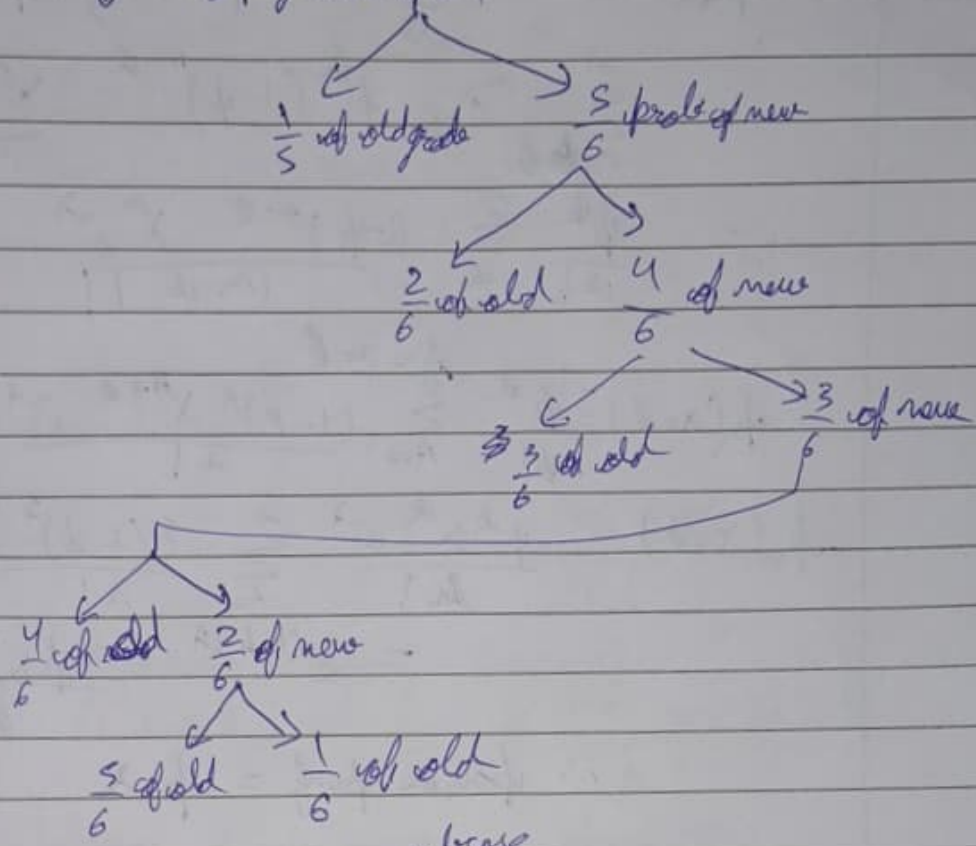 1/5 of old grade 5/6 prob of new
2/6 of old. 4/6 of new
3/6 of old 3/6 of new
4/6 of old 2/6 of new
5/6 of old 1/6 of old